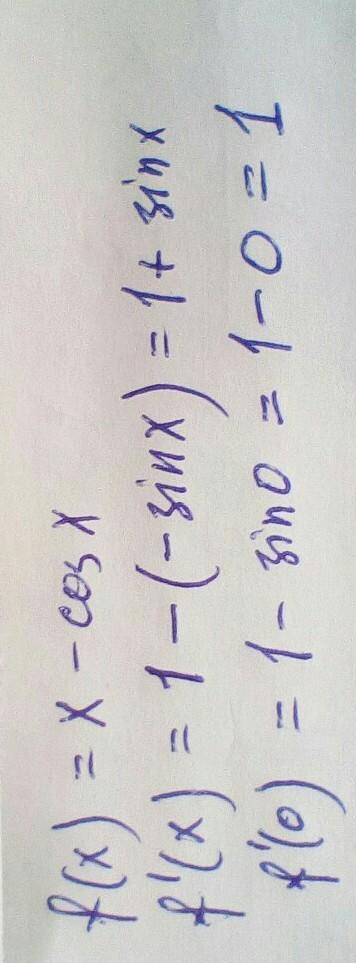 f(x) = x - cos x
f'(x) = 1 - (-sin x) = 1 + sin x
f'(0) = 1 - sin 0 = 1 - 0 = 1